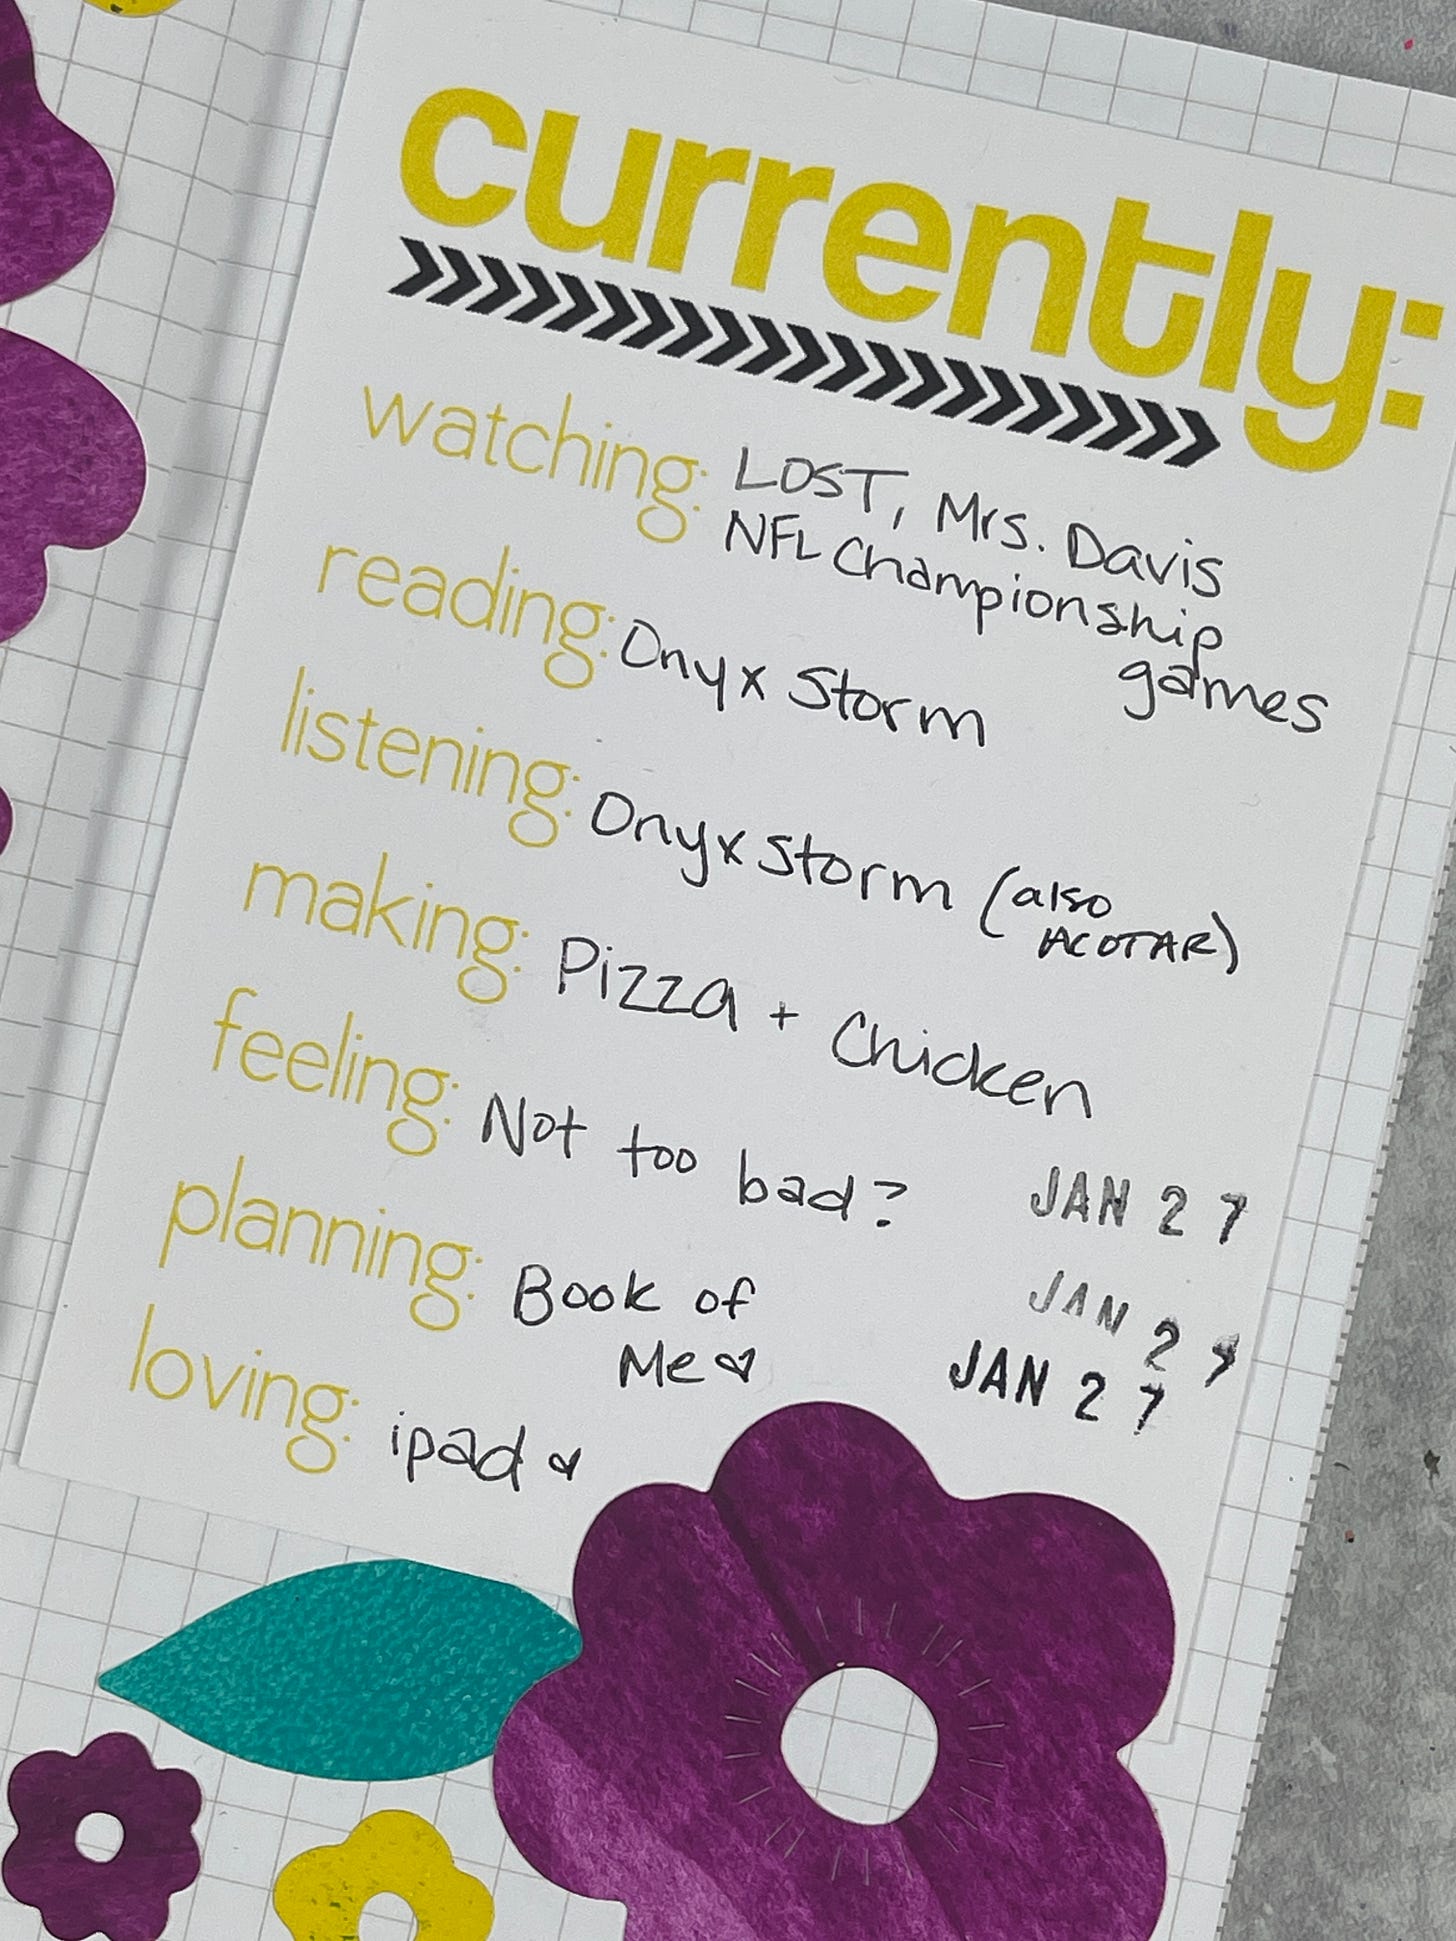 currently:
watching: LOST, Mrs. Davis
NFL Championship
games
reading: Onyx Storm
listening: Onyx Storm (also
ACOTAR)
making: Pizza + Chicken
feeling: Not too bad?
JAN 27
planning: Book of
Me
JAN 27
JAN 27
loving: ipad